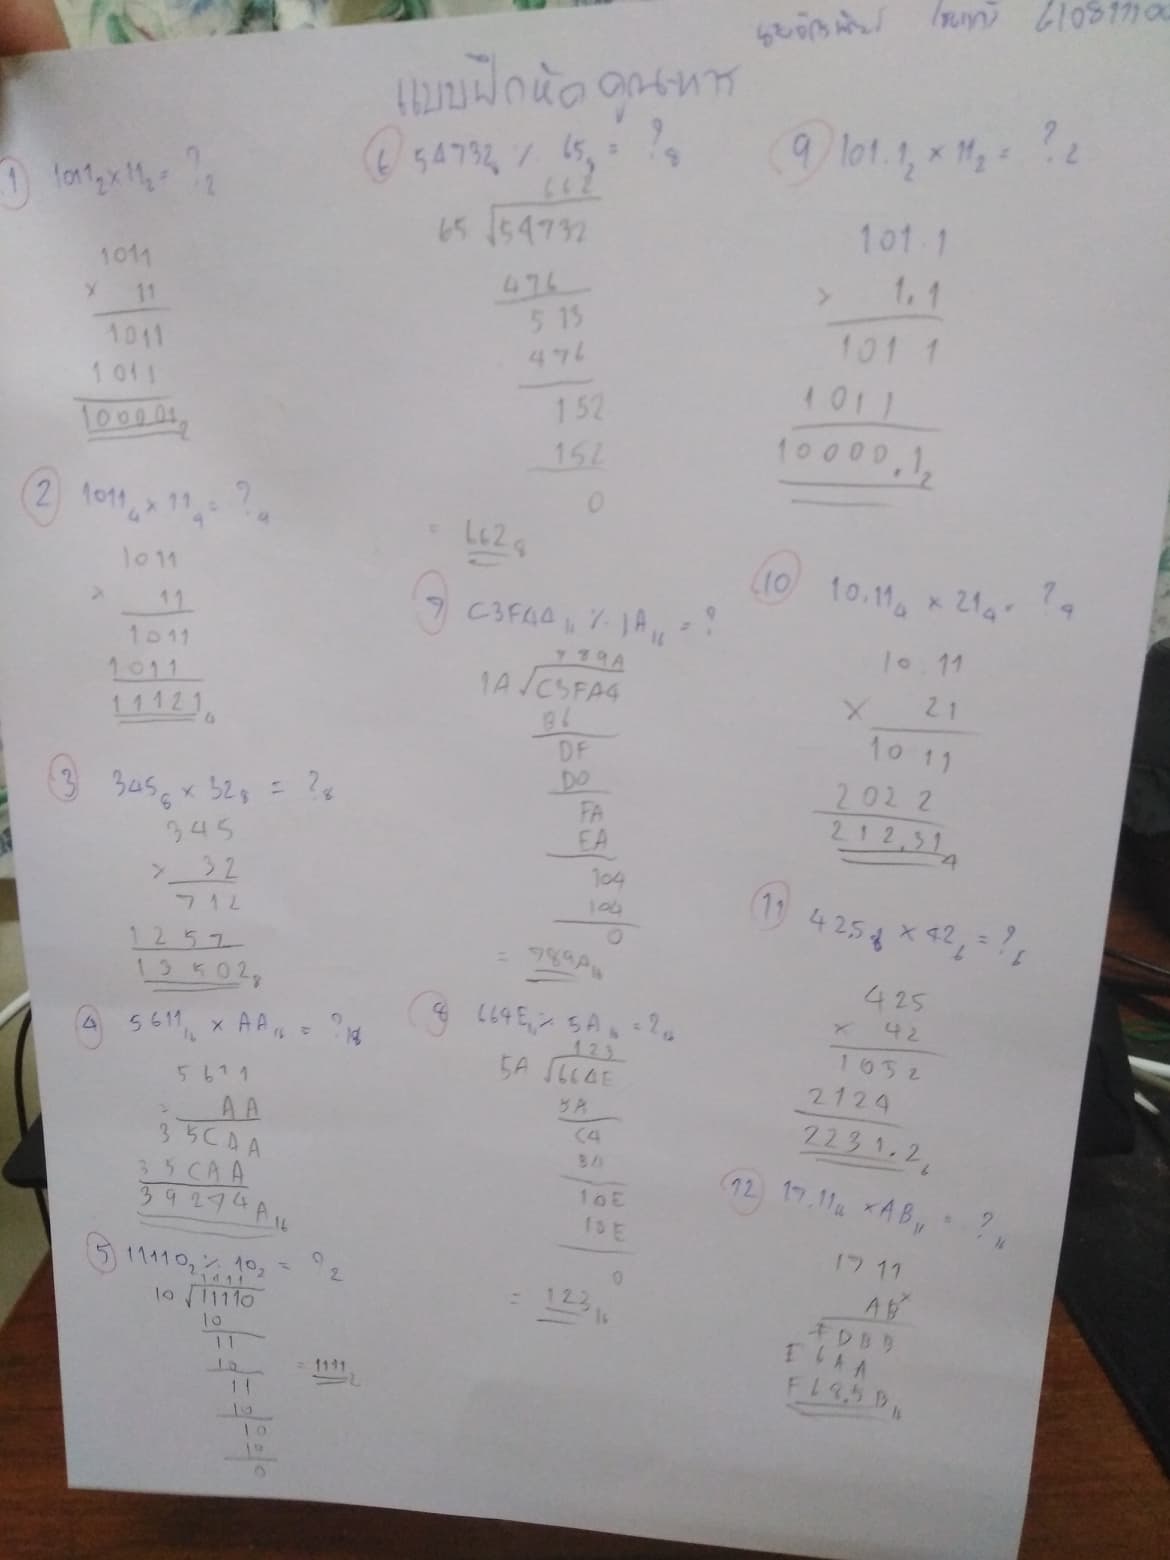 61081110
แบบฝึกหัด คูณ-หาร
1 1011₂ x 11₂ = ?₂
1011
x 11
1011
1011
100001₂
2 1011₄ x 11₄ = ?₄
1011
x 11
1011
1011
11121₄
3 345₆ x 32₈ = ?₈
345
x 32
712
1257
13502₈
4 5611₁₆ x AA₁₆ = ?₁₆
5611
AA
35CAA
35CAA
39274A₁₆
5 11110₂ ÷ 10₂ = ?₂
1111
10 √11110
10
11
10
11 = 1111₂
10
10
10
0
6 54732₈ ÷ 65₈ = ?₈
662
65 √54732
476
513
476
152
152
0
= 662₈
7 C3FA4₁₆ ÷ 1A₁₆ = ?
789A
1A √C3FA4
B6
DF
D0
FA
EA
104
104
0
= 789A₁₆
8 664E₁₆ ÷ 5A₁₆ = ?₁₆
123
5A √664E
5A
C4
B4
10E
10E
0
= 123₁₆
9 101.1₂ x 11₂ = ?₂
101.1
x 1.1
1011
1011
10000.1₂
10 10.11₄ x 21₄ = ?₄
10.11
x 21
1011
2022
212.31₄
11 42.5₈ x 42₆ = ?₆
425
x 42
1052
2124
2231.2₆
12 17.11₁₆ x AB₁₆ = ?₁₆
1711
AB x
FDBB
E6AA
F68.5B₁₆